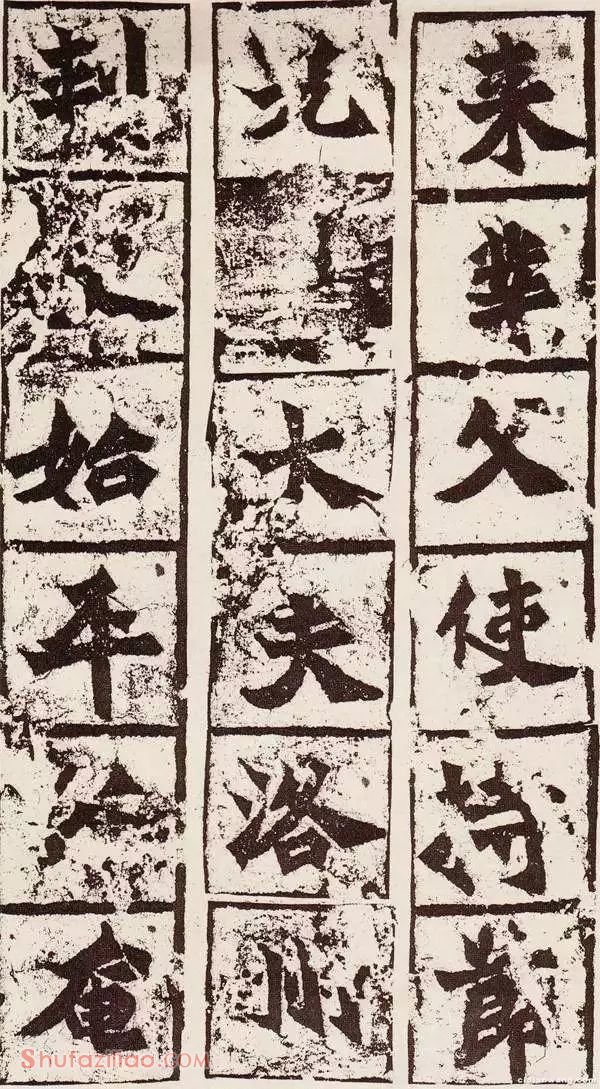 来業父使持節
光大夫洛州
刺史始平公奄
Shufaziliao.COM